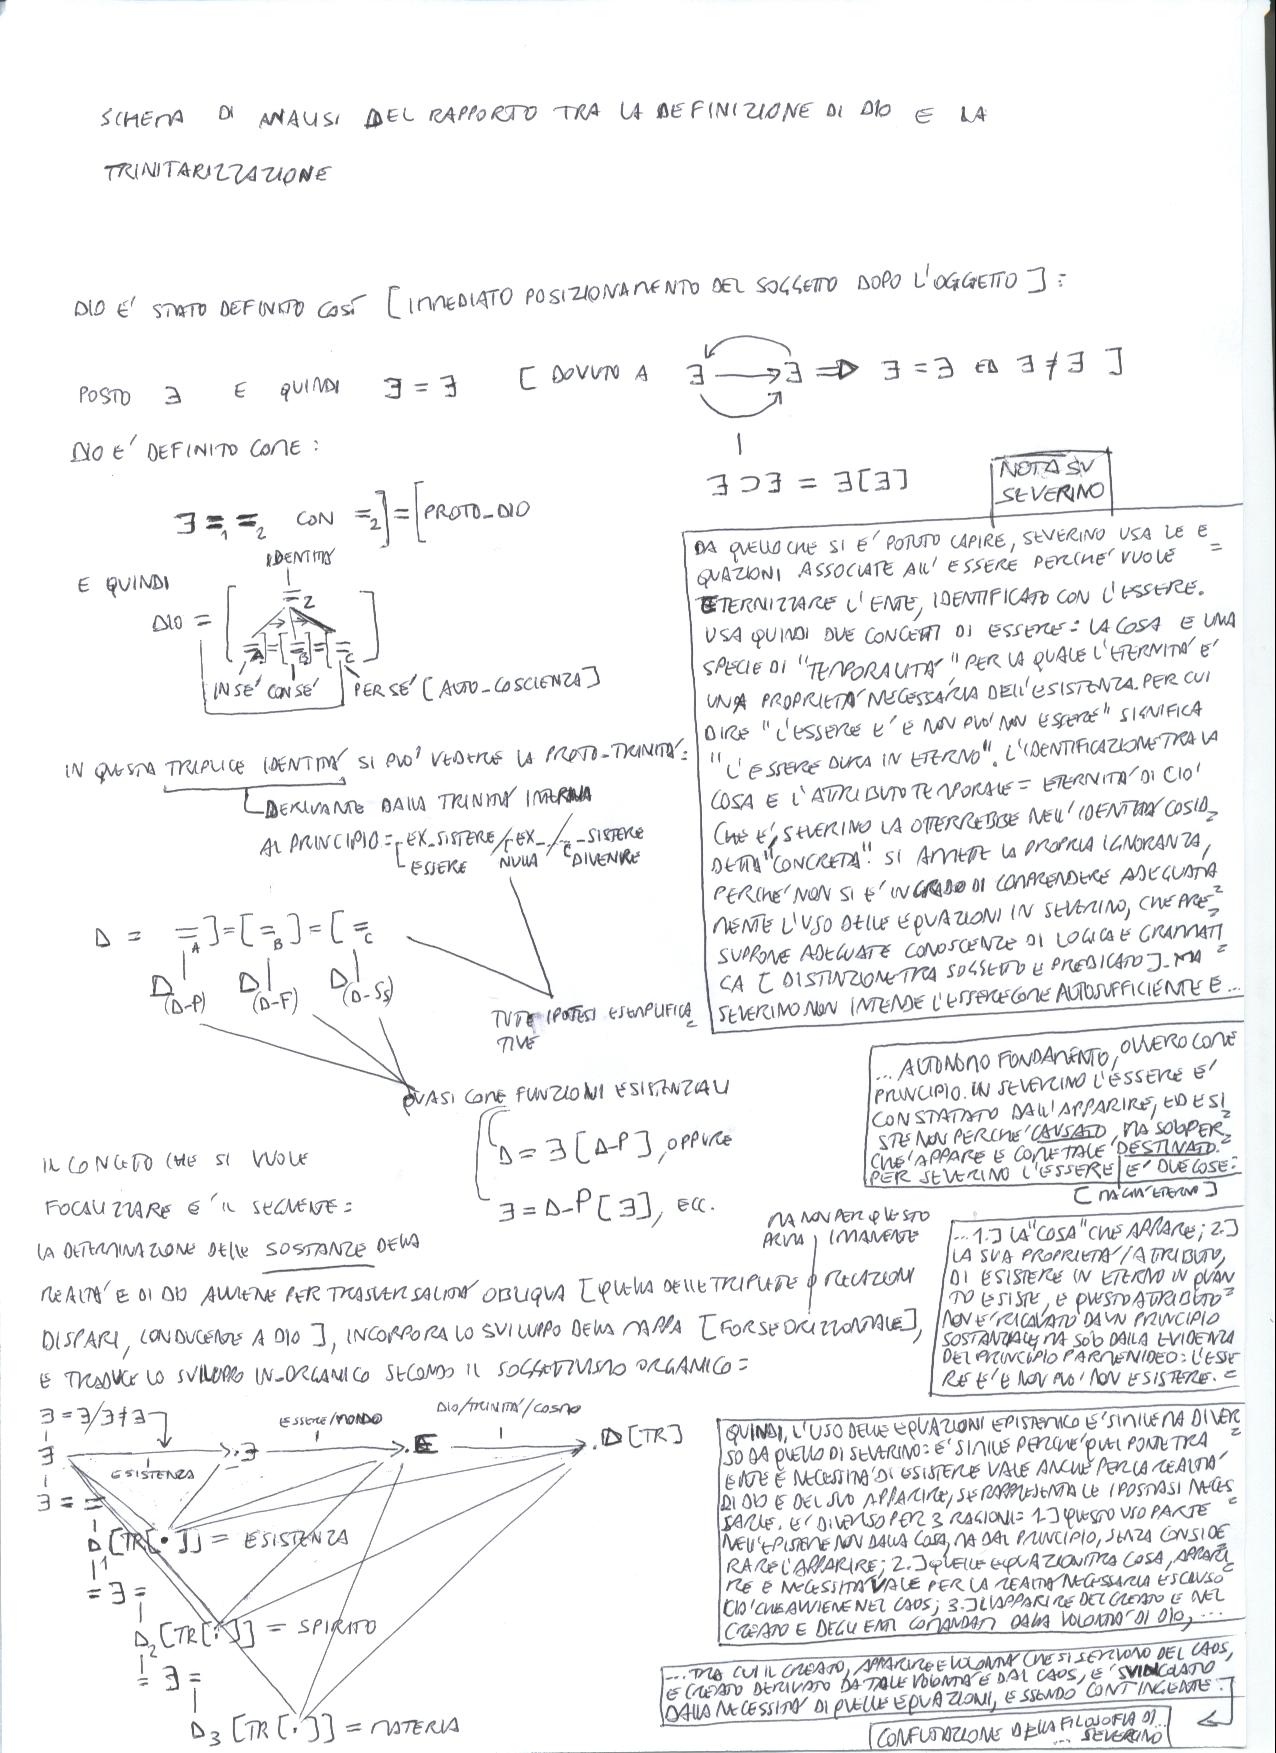 SCHEMA DI ANALISI DEL RAPPORTO TRA LA DEFINIZIONE DI DIO E LA
TRINITARIZZAZIONE
DIO E' STATO DEFINITO COSÌ [IMMEDIATO POSIZIONAMENTO DEL SOGGETTO DOPO L'OGGETTO]:
POSTO ∃ E QUINDI ∃ = ∃ [DOVUTO A ∃ → ∃ ⇒ ∃ = ∃ ED ∃ ≠ ∃ ]
DIO E' DEFINITO COME:
∃ ⊃ ∃ = ∃[∃]
∃ =₁ =₂ CON =₂] = [PROTO_DIO
E QUINDI
IDENTITÀ
=₂
DIO = [ =A] = [=B] = [=C ]
IN SE' CON SE' PER SE' [AUTO-COSCIENZA]
IN QUESTA TRIPLICE IDENTITÀ SI PUO' VEDERE LA PROTO-TRINITÀ:
DERIVANTE DALLA TRINITÀ INTERNA
AL PRINCIPIO = EX_SISTERE / EX_ / _SISTERE
ESSERE NULLA DIVENIRE
D = =A] = [=B] = [=C
D D D
(D-P) (D-F) (D-SS)
TUTTE IPOTESI ESEMPLIFICA=
TIVE
QUASI COME FUNZIONI ESISTENZIALI
D = ∃ [D-P], OPPURE
∃ = D-P [∃], ECC.
IL CONCETTO CHE SI VUOLE
FOCALIZZARE E' IL SEGUENTE:
LA DETERMINAZIONE DELLE SOSTANZE DELLA
REALTÀ E DI DIO AVVIENE PER TRASVERSALITÀ OBLIQUA [QUELLA DELLE TRIPLETTE O RELAZIONI
MA NON PER QUESTO
IMMANENTE
DISPARI, CONDUCENTE A DIO], INCORPORA LO SVILUPPO DELLA MAPPA [FORSE ORIZZONTALE],
E TRADUCE LO SVILUPPO IN_ORGANICO SECONDO IL SOGGETTIVISMO ORGANICO:
∃ = ∃/∃ ≠ ∃
ESSERE/MONDO
DIO/TRINITÀ/COSMO
∃ .∃ .E .D [TR]
ESISTENZA
∃ = =
D₁ [TR[•]] = ESISTENZA
= ∃ =
D₂ [TR[•]] = SPIRITO
= ∃ =
D₃ [TR[•]] = MATERIA
NOTA SU
SEVERINO
DA QUELLO CHE SI E' POTUTO CAPIRE, SEVERINO USA LE E=
QUAZIONI ASSOCIATE ALL'ESSERE PERCHE' VUOLE
ETERNIZZARE L'ENTE, IDENTIFICATO CON L'ESSERE.
USA QUINDI DUE CONCETTI DI ESSERE: LA COSA E UNA
SPECIE DI "TEMPORALITÀ", PER LA QUALE L'ETERNITÀ E'
UNA PROPRIETÀ NECESSARIA DELL'ESISTENZA. PER CUI
DIRE "L'ESSERE E' E NON PUO' NON ESSERE" SIGNIFICA
"L'ESSERE DURA IN ETERNO". L'IDENTIFICAZIONE TRA LA
COSA E L'ATTRIBUTO TEMPORALE = ETERNITÀ DI CIO'
CHE E', SEVERINO LA OTTERREBBE NELL'IDENTITÀ COSID=
DETTA "CONCRETA". SI AMMETTE LA PROPRIA IGNORANZA,
PERCHE' NON SI E' IN GRADO DI COMPRENDERE ADEGUATA=
MENTE L'USO DELLE EQUAZIONI IN SEVERINO, CHE PRE=
SUPPONE ADEGUATE CONOSCENZE DI LOGICA E GRAMMATI=
CA [DISTINZIONE TRA SOGGETTO E PREDICATO]. MA
SEVERINO NON INTENDE L'ESSERE COME AUTOSUFFICIENTE E ...
... AUTONOMO FONDAMENTO, OVVERO COME
PRINCIPIO. IN SEVERINO L'ESSERE E'
CONSTATATO DALL'APPARIRE, ED ESI=
STE NON PERCHE' CAUSATO, MA SOLO PER=
CHE' APPARE E COME TALE DESTINATO.
PER SEVERINO L'ESSERE E' DUE COSE:
[MA GIÀ ETERNO]
... 1.] LA "COSA" CHE APPARE; 2.]
LA SUA PROPRIETÀ/ATTRIBUTO,
DI ESISTERE IN ETERNO IN QUAN=
TO ESISTE, E QUESTO ATTRIBUTO
NON E' RICAVATO DA UN PRINCIPIO
SOSTANZIALE, MA SOLO DALLA EVIDENZA
DEL PRINCIPIO PARMENIDEO: L'ESSE=
RE E' E NON PUO' NON ESISTERE. =
QUINDI, L'USO DELLE EQUAZIONI EPISTEMICO E' SIMILE MA DIVER=
SO DA QUELLO DI SEVERINO: E' SIMILE PERCHE' QUEL PONTE TRA
ENTE E NECESSITÀ DI ESISTERE VALE ANCHE PER LA REALTÀ
DI DIO E DEL SUO APPARIRE, SE RAPPRESENTA LE IPOSTASI NECES=
SARIE. E' DIVERSO PER 3 RAGIONI: 1.] QUESTO USO PARTE
NELL'EPISTEME NON DALLA COSA, MA DAL PRINCIPIO, SENZA CONSIDE=
RARE L'APPARIRE; 2.] QUELLE EQUAZIONI TRA COSA, APPARI=
RE E NECESSITÀ VALE PER LA REALTÀ NECESSARIA ESCLUSO
CIO' CHE AVVIENE NEL CAOS; 3.] L'APPARIRE DEL CREATO E NEL
CREATO E DEGLI ENTI COMANDATI DALLA VOLONTÀ DI DIO, ...
... TRA CUI IL CREATO, APPARIRE E VOLONTÀ CHE SI SERVONO DEL CAOS,
E CREATO DERIVATO DA TALE VOLONTÀ E DAL CAOS, E' SVINCOLATO
DALLA NECESSITÀ DI QUELLE EQUAZIONI, ESSENDO CONTINGENTE.
CONFUTAZIONE DELLA FILOSOFIA DI ...
... SEVERINO